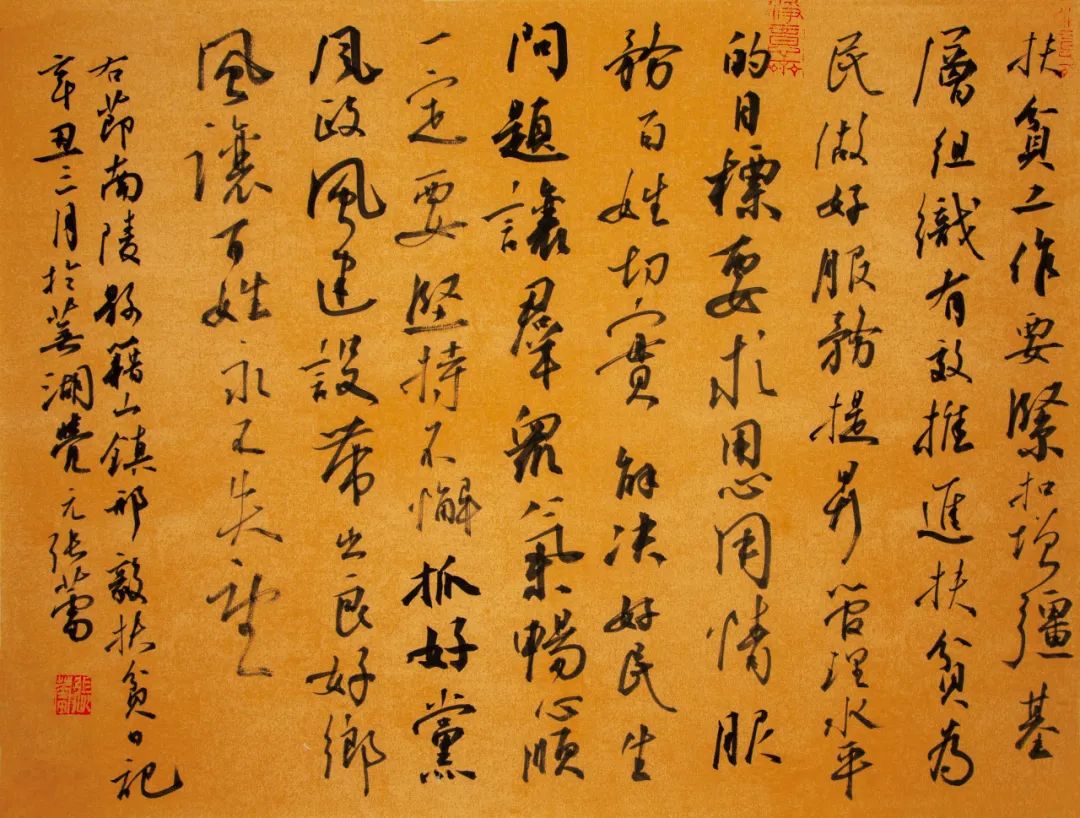 扶貧工作要緊扣增彊基
層組織有效推進扶貧為
民做好服務提昇管理水平
的目標要求用心用情服
務百姓切實解决好民生
問題讓羣衆氣暢心順
一定要堅持不懈抓好黨
風政風建設帶出良好鄉
風讓百姓永不失望
右節南陵縣籍山鎮邢毅扶貧日記
辛丑三月於蕪湖覺元張蕾